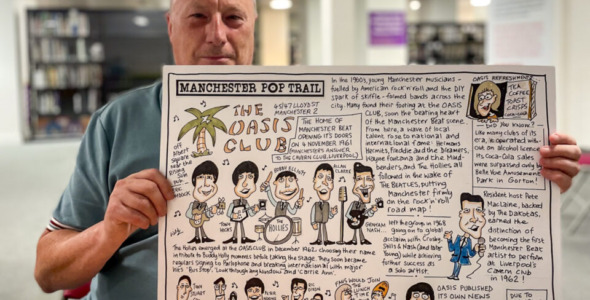 MANCHESTER POP TRAIL
THE
OASIS
CLUB
45/47 LLOYD ST
MANCHESTER 2
THE HOME OF
MANCHESTER BEAT
OPENING ITS DOORS
ON 4 NOVEMBER 1961
(MANCHESTER'S ANSWER
TO THE CAVERN CLUB, LIVERPOOL)
off
Albert
Square
In the 1960s, young Manchester musicians -
fuelled by American rock'n'roll and the DIY
spark of skiffle - formed bands across the
city. Many found their footing at the OASIS
CLUB, soon the beating heart
of the Manchester Beat scene.
From here, a wave of local
talent rose to national and
international fame: Hermans
Hermits, Freddie and the Dreamers,
Wayne Fontana and the Mind-
benders, and The Hollies all
followed in the wake of
THE BEATLES, putting
Manchester firmly
on the rock'n'roll
road map!
OASIS REFRESHMENTS
TEA
COFFEE
TOAST
CRISPS
DID YOU KNOW?
Like many clubs of its
era, is operated with-
out an alcohol licence.
Its Coca-Cola sales
were surpassed only by
Belle Vue Amusement
Park in Gorton!
ALLAN CLARKE
GRAHAM
NASH
HOLLIES
The Hollies emerged at the OASIS CLUB in December 1962, choosing their name
in tribute to Buddy Holly moments before taking the stage. They soon became
regulars signing to Parlophone and breaking internationally with major
hits 'Bus Stop', 'Look through any window' and 'Carrie Ann'.
left the group in 1968
going on to global
acclaim with Crosby,
Stills & Nash (and later
Young) while achieving
further success as
a solo artist.
Resident host Pete
MacLaine, backed
by the Dakotas,
earned the
distinction of
becoming the first
Manchester Beat
artist to perform
at Liverpool's
Cavern Club
in 1962!
THIS WOULD JOIN
THE
LUNCH
TIME
OASIS PUBLISHED
ITS OWN NEWS